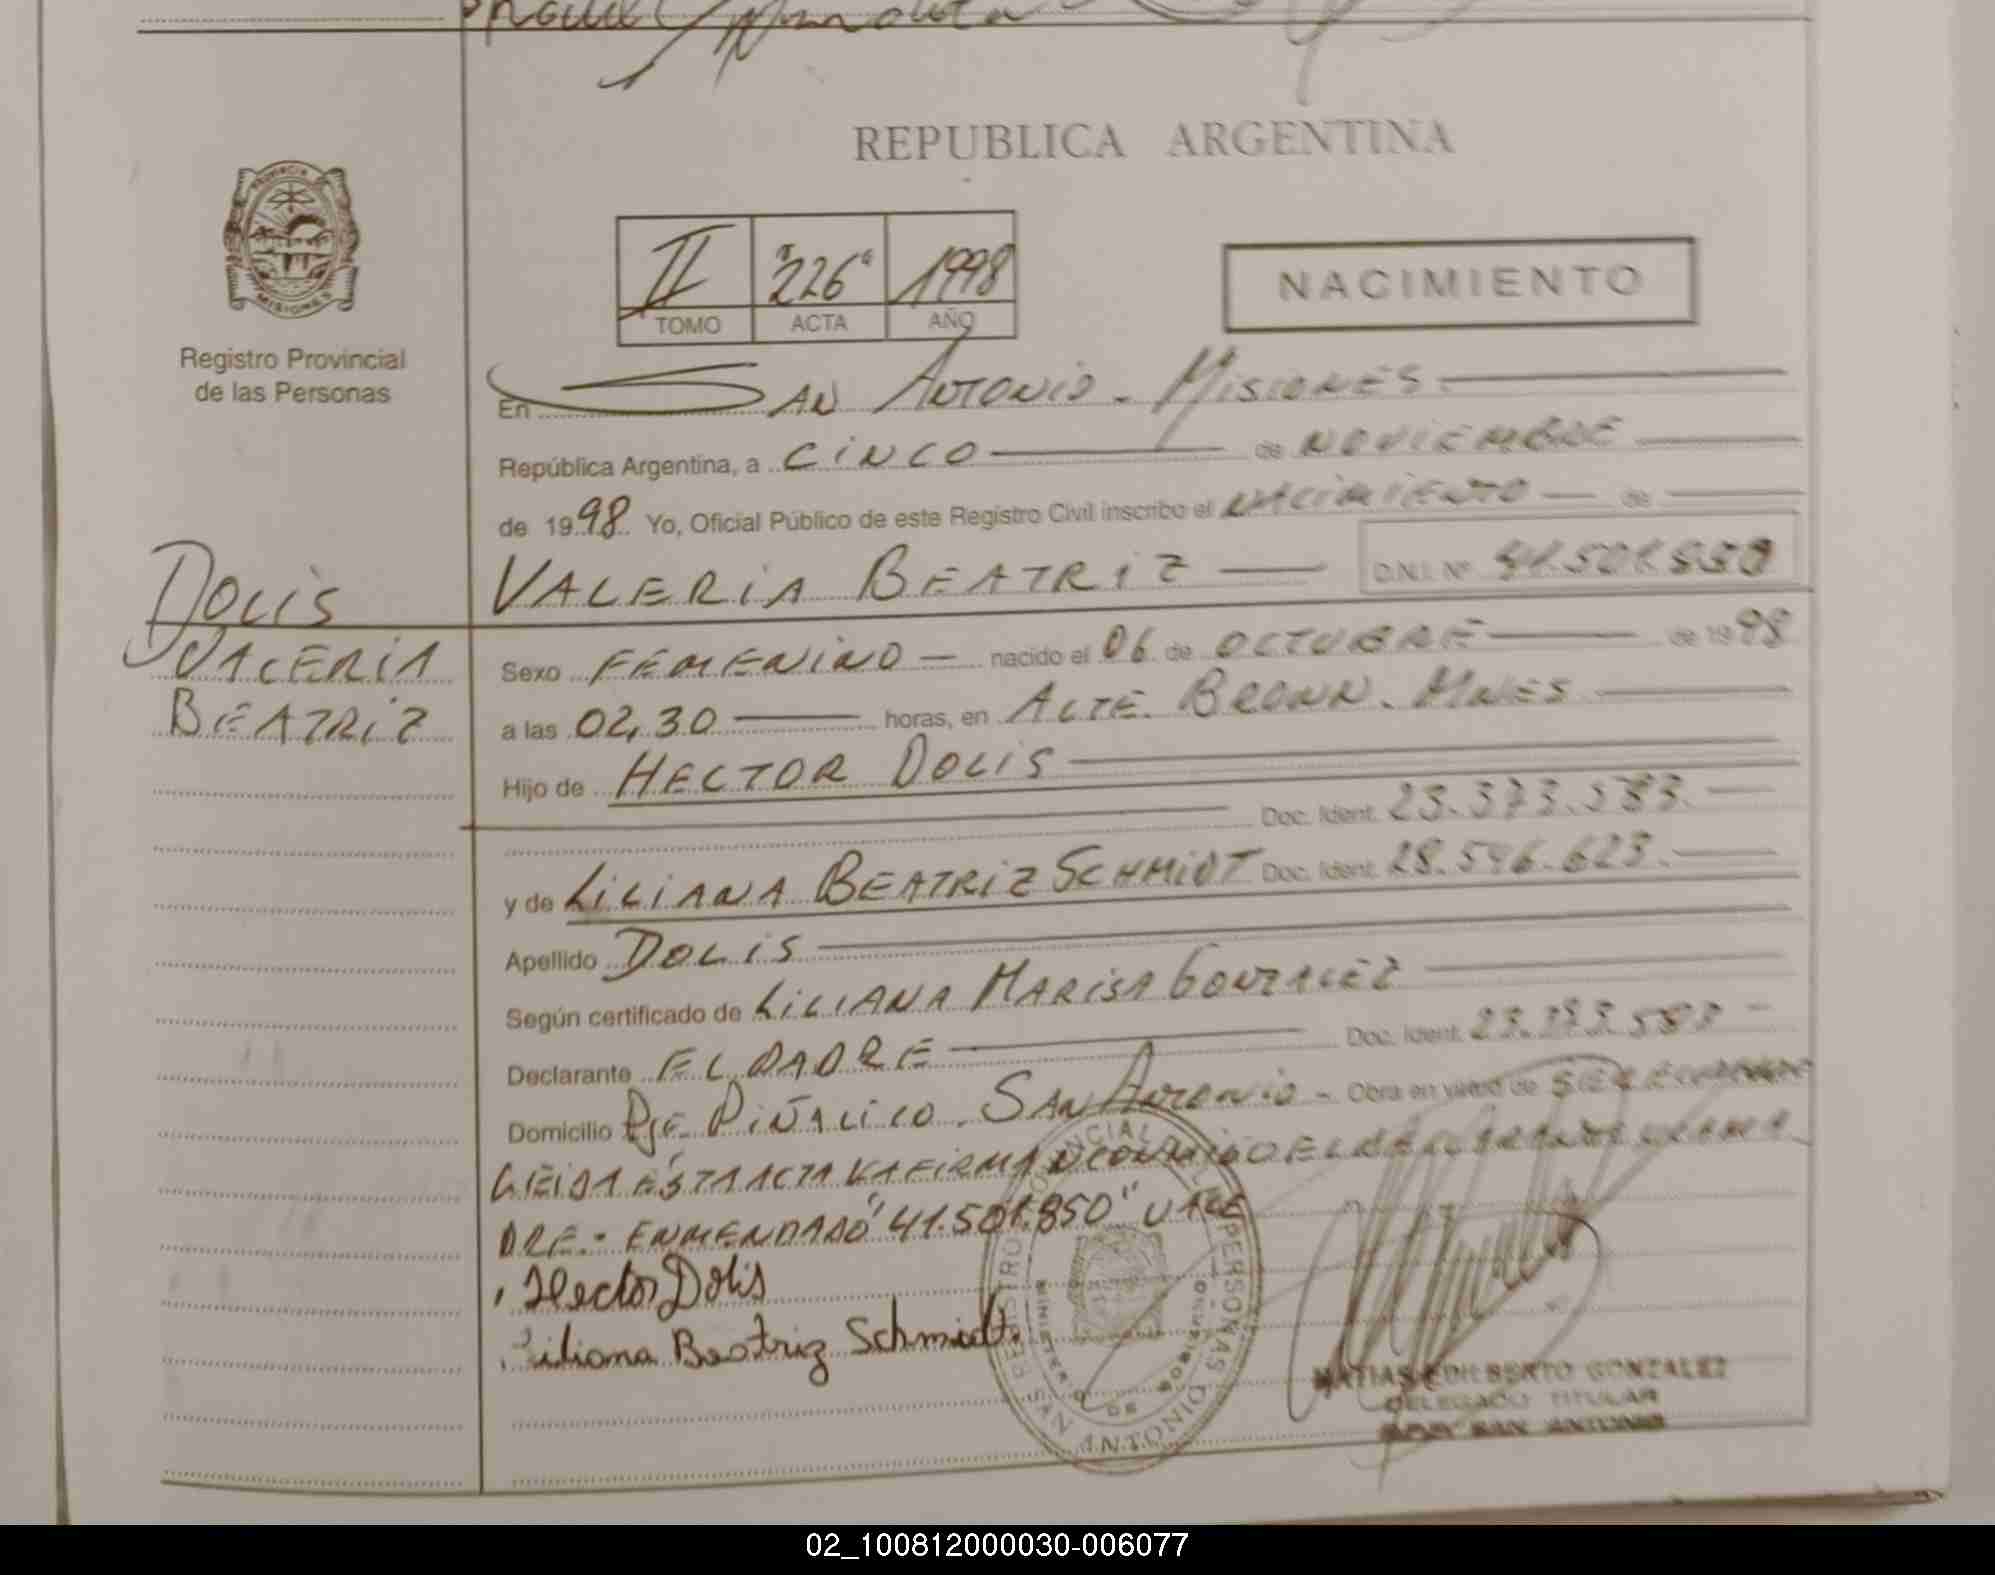 REPUBLICA ARGENTINA
PROVINCIA DE
MISIONES
Registro Provincial
de las Personas
II "226" 1998
TOMO ACTA AÑO
NACIMIENTO
En SAN ANTONIO - MISIONES
República Argentina, a CINCO de NOVIEMBRE
de 1998 Yo, Oficial Público de este Registro Civil inscribo el NACIMIENTO de
VALERIA BEATRIZ D.N.I. Nº 41.501.850
DOLIS
VALERIA
BEATRIZ
Sexo FEMENINO nacido el 06 de OCTUBRE de 1998
a las 02,30 horas, en ALTE. BROWN. MNES
Hijo de HECTOR DOLIS
Doc. Ident.
y de LILIANA BEATRIZ SCHMIDT Doc. Ident. 28.546.623.
Apellido DOLIS
Según certificado de LILIANA MARISA GONZALEZ
Declarante EL PADRE Doc. Ident.
Domicilio PJE. PIÑALITO. SAN ANTONIO - Obra en virtud de
LEIDA ESTA ACTA LA FIRMAN CONMIGO EL DECLARANTE Y LA MA
DRE.- ENMENDADO "41.501.850" VALE
Hector Dolis
Liliana Beatriz Schmidt
REGISTRO PROVINCIAL DE LAS PERSONAS
MINISTERIO DE GOBIERNO
SAN ANTONIO
MATIAS EDILBERTO GONZALEZ
DELEGADO TITULAR
SAN ANTONIO
02_100812000030-006077